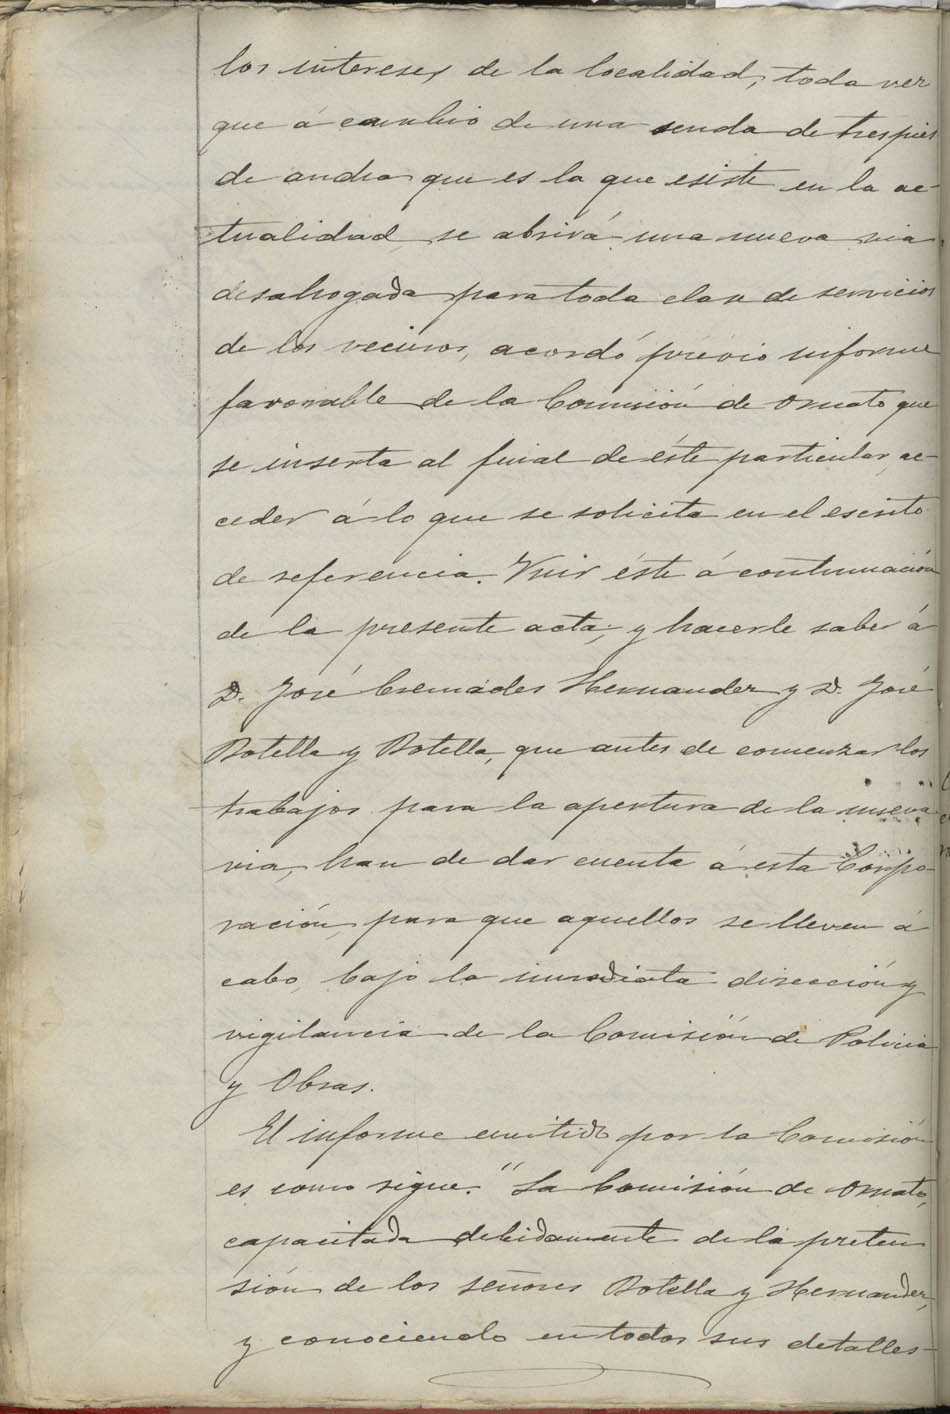 los intereses de la localidad, toda vez
que á cambio de una senda de tres pies
de ancha que es la que esiste en la ac-
tualidad, se abrirá una nueva via
desahogada para toda clase de servicios
de los vecinos, acordó previo informe
favorable de la Comisión de Ornato que
se inserta al final de éste particular, ac-
ceder á lo que se solicita en el escrito
de referencia. Unir éste á continuación
de la presente acta; y hacerle saber á
D. José Cremades Hernandez y D. José
Botella y Botella, que antes de comenzar los
trabajos para la apertura de la nueva
via, han de dar cuenta á esta Corpo-
ración, para que aquellos se lleven á
cabo, bajo la inmediata dirección y
vigilancia de la Comisión de Policia
y Obras.
El informe emitido por la Comisión
es como sigue. "La Comisión de Ornato,
capacitada debidamente de la preten
sión de los señores Botella y Hernandez,
y conociendo en todos sus detalles